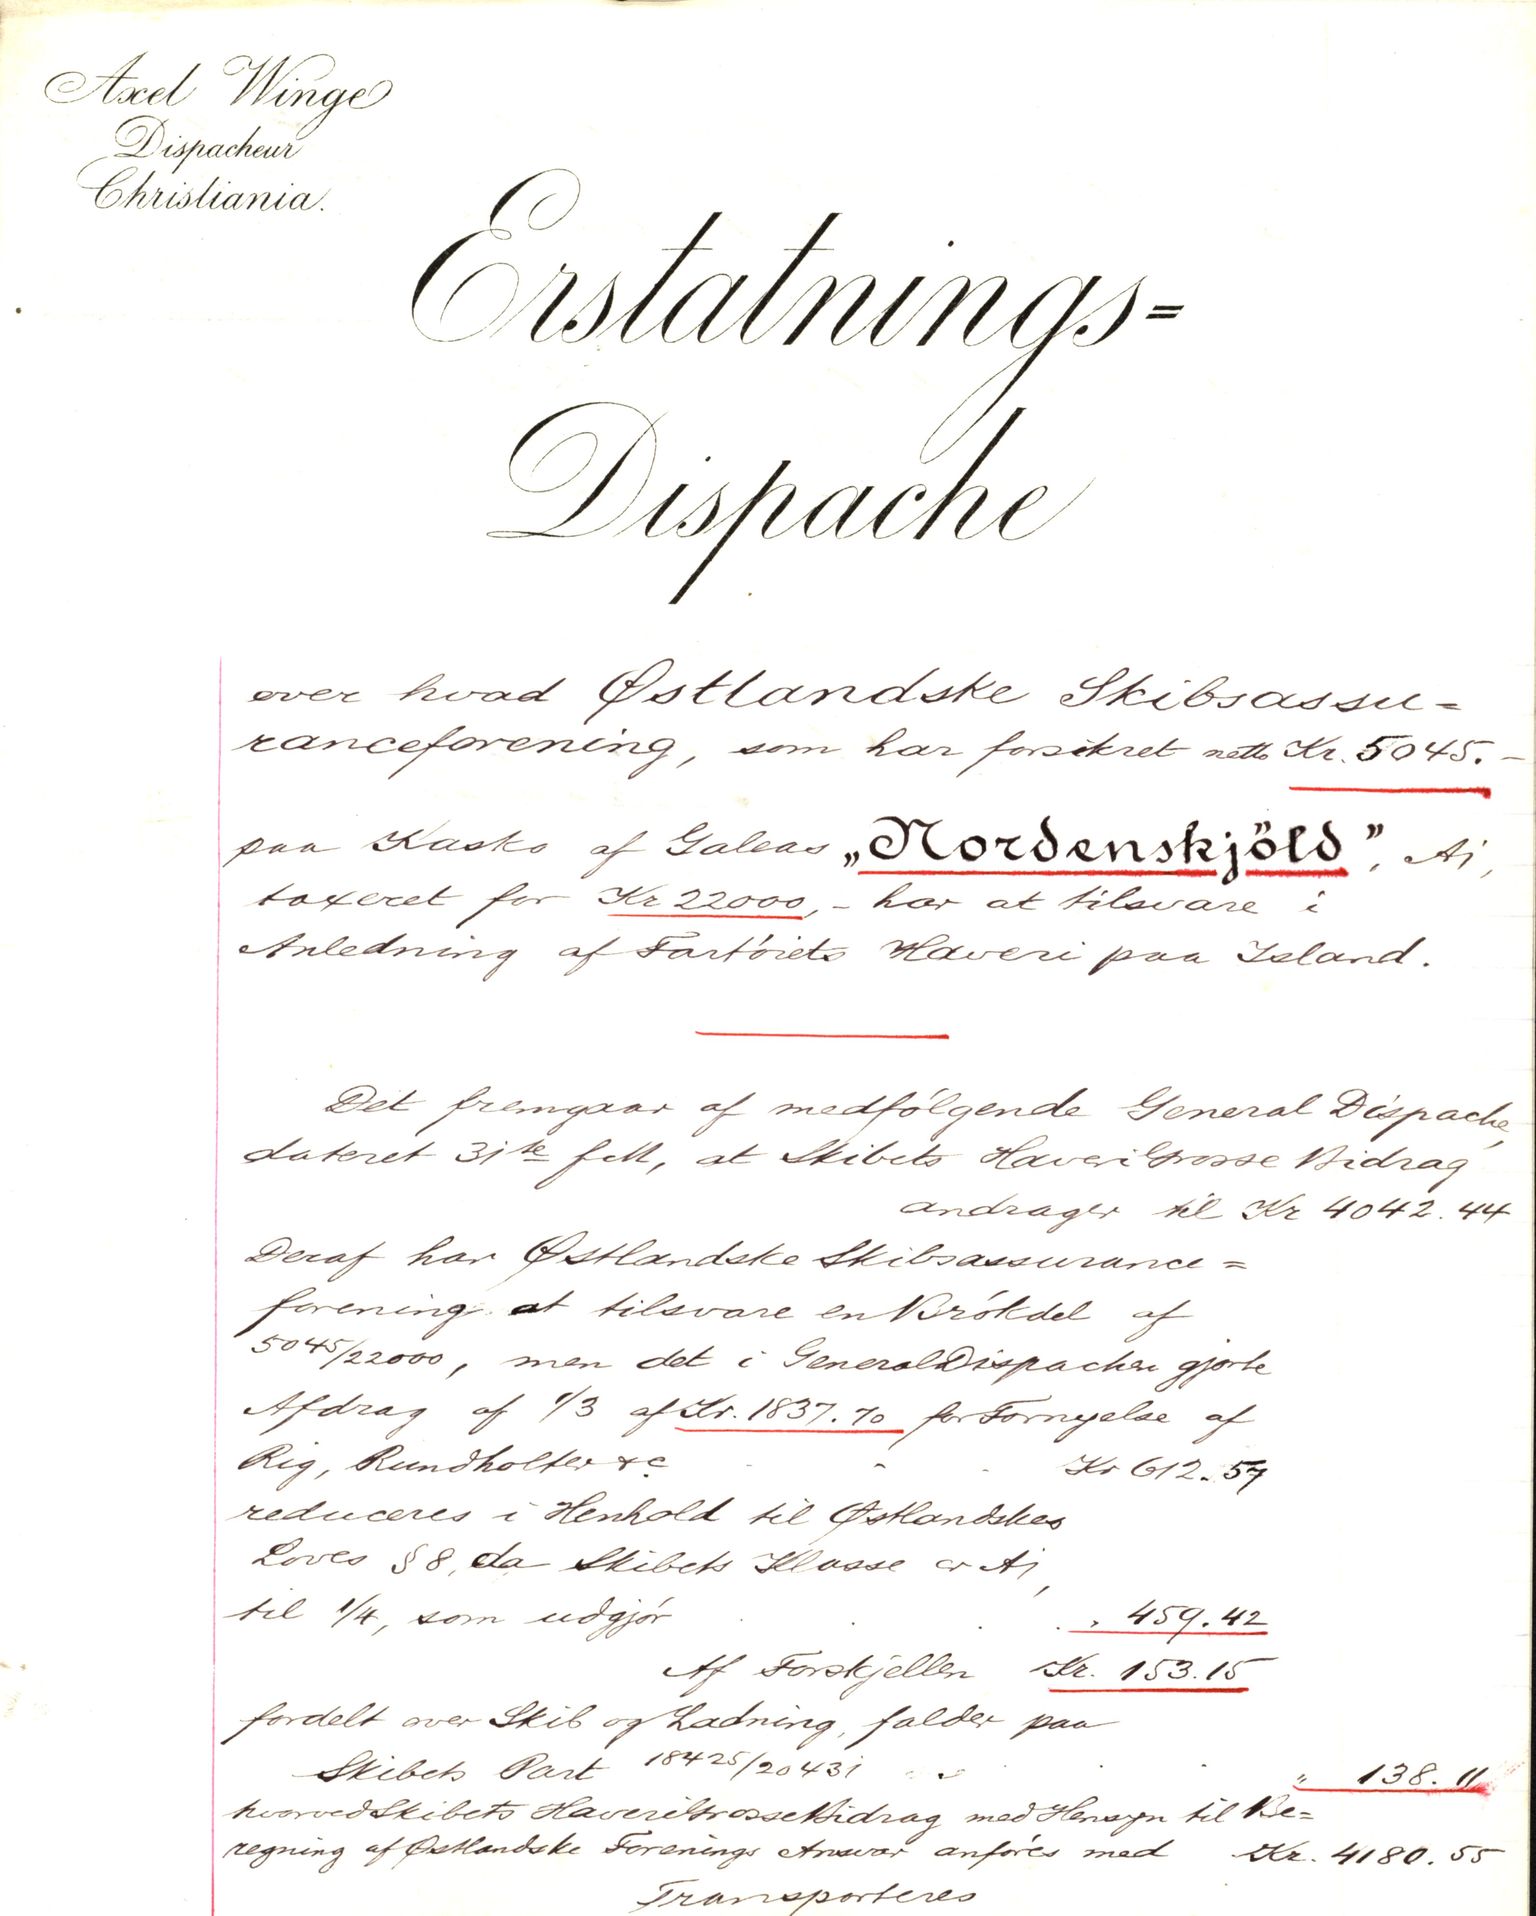 Axel Winge
Dispacheur
Christiania.
Erstatnings=
Dispache
over hvad Østlandske Skibsassu=
ranceforening, som har forsikret netto Kr. 5045.–
paa Kasko af Galeas „Nordenskjöld”, A1,
taxeret for Kr 22000,– har at tilsvare i
Anledning af Fartøiets Haveri paa Island.
Det fremgaar af medfølgende General Dispache,
dateret 31te f M, at Skibets HaveriGrosse Bidrag
andrager til Kr 4042.44
Deraf har Østlandske Skibsassurance=
forening at tilsvare en Brøkdel af
5045/22000, men det i GeneralDispachen gjorte
Afdrag af 1/3 af Kr. 1837.70 for Fornyelse af
Rig, Rundholter &c Kr 612.57
reduceres i Henhold til Østlandskes
Loves § 8, da Skibets Klasse er A1,
til 1/4, som udgjør „ 459.42
Af Forskjellen Kr. 153.15
fordelt over Skib og Ladning, falder paa
Skibets Part 18425/20431 „ 138.11
hvorved Skibets HaveriGrosseBidrag med Hensyn til Be=
regning af Østlandske Forenings Ansvar anføres med Kr. 4180.55
Transporteres